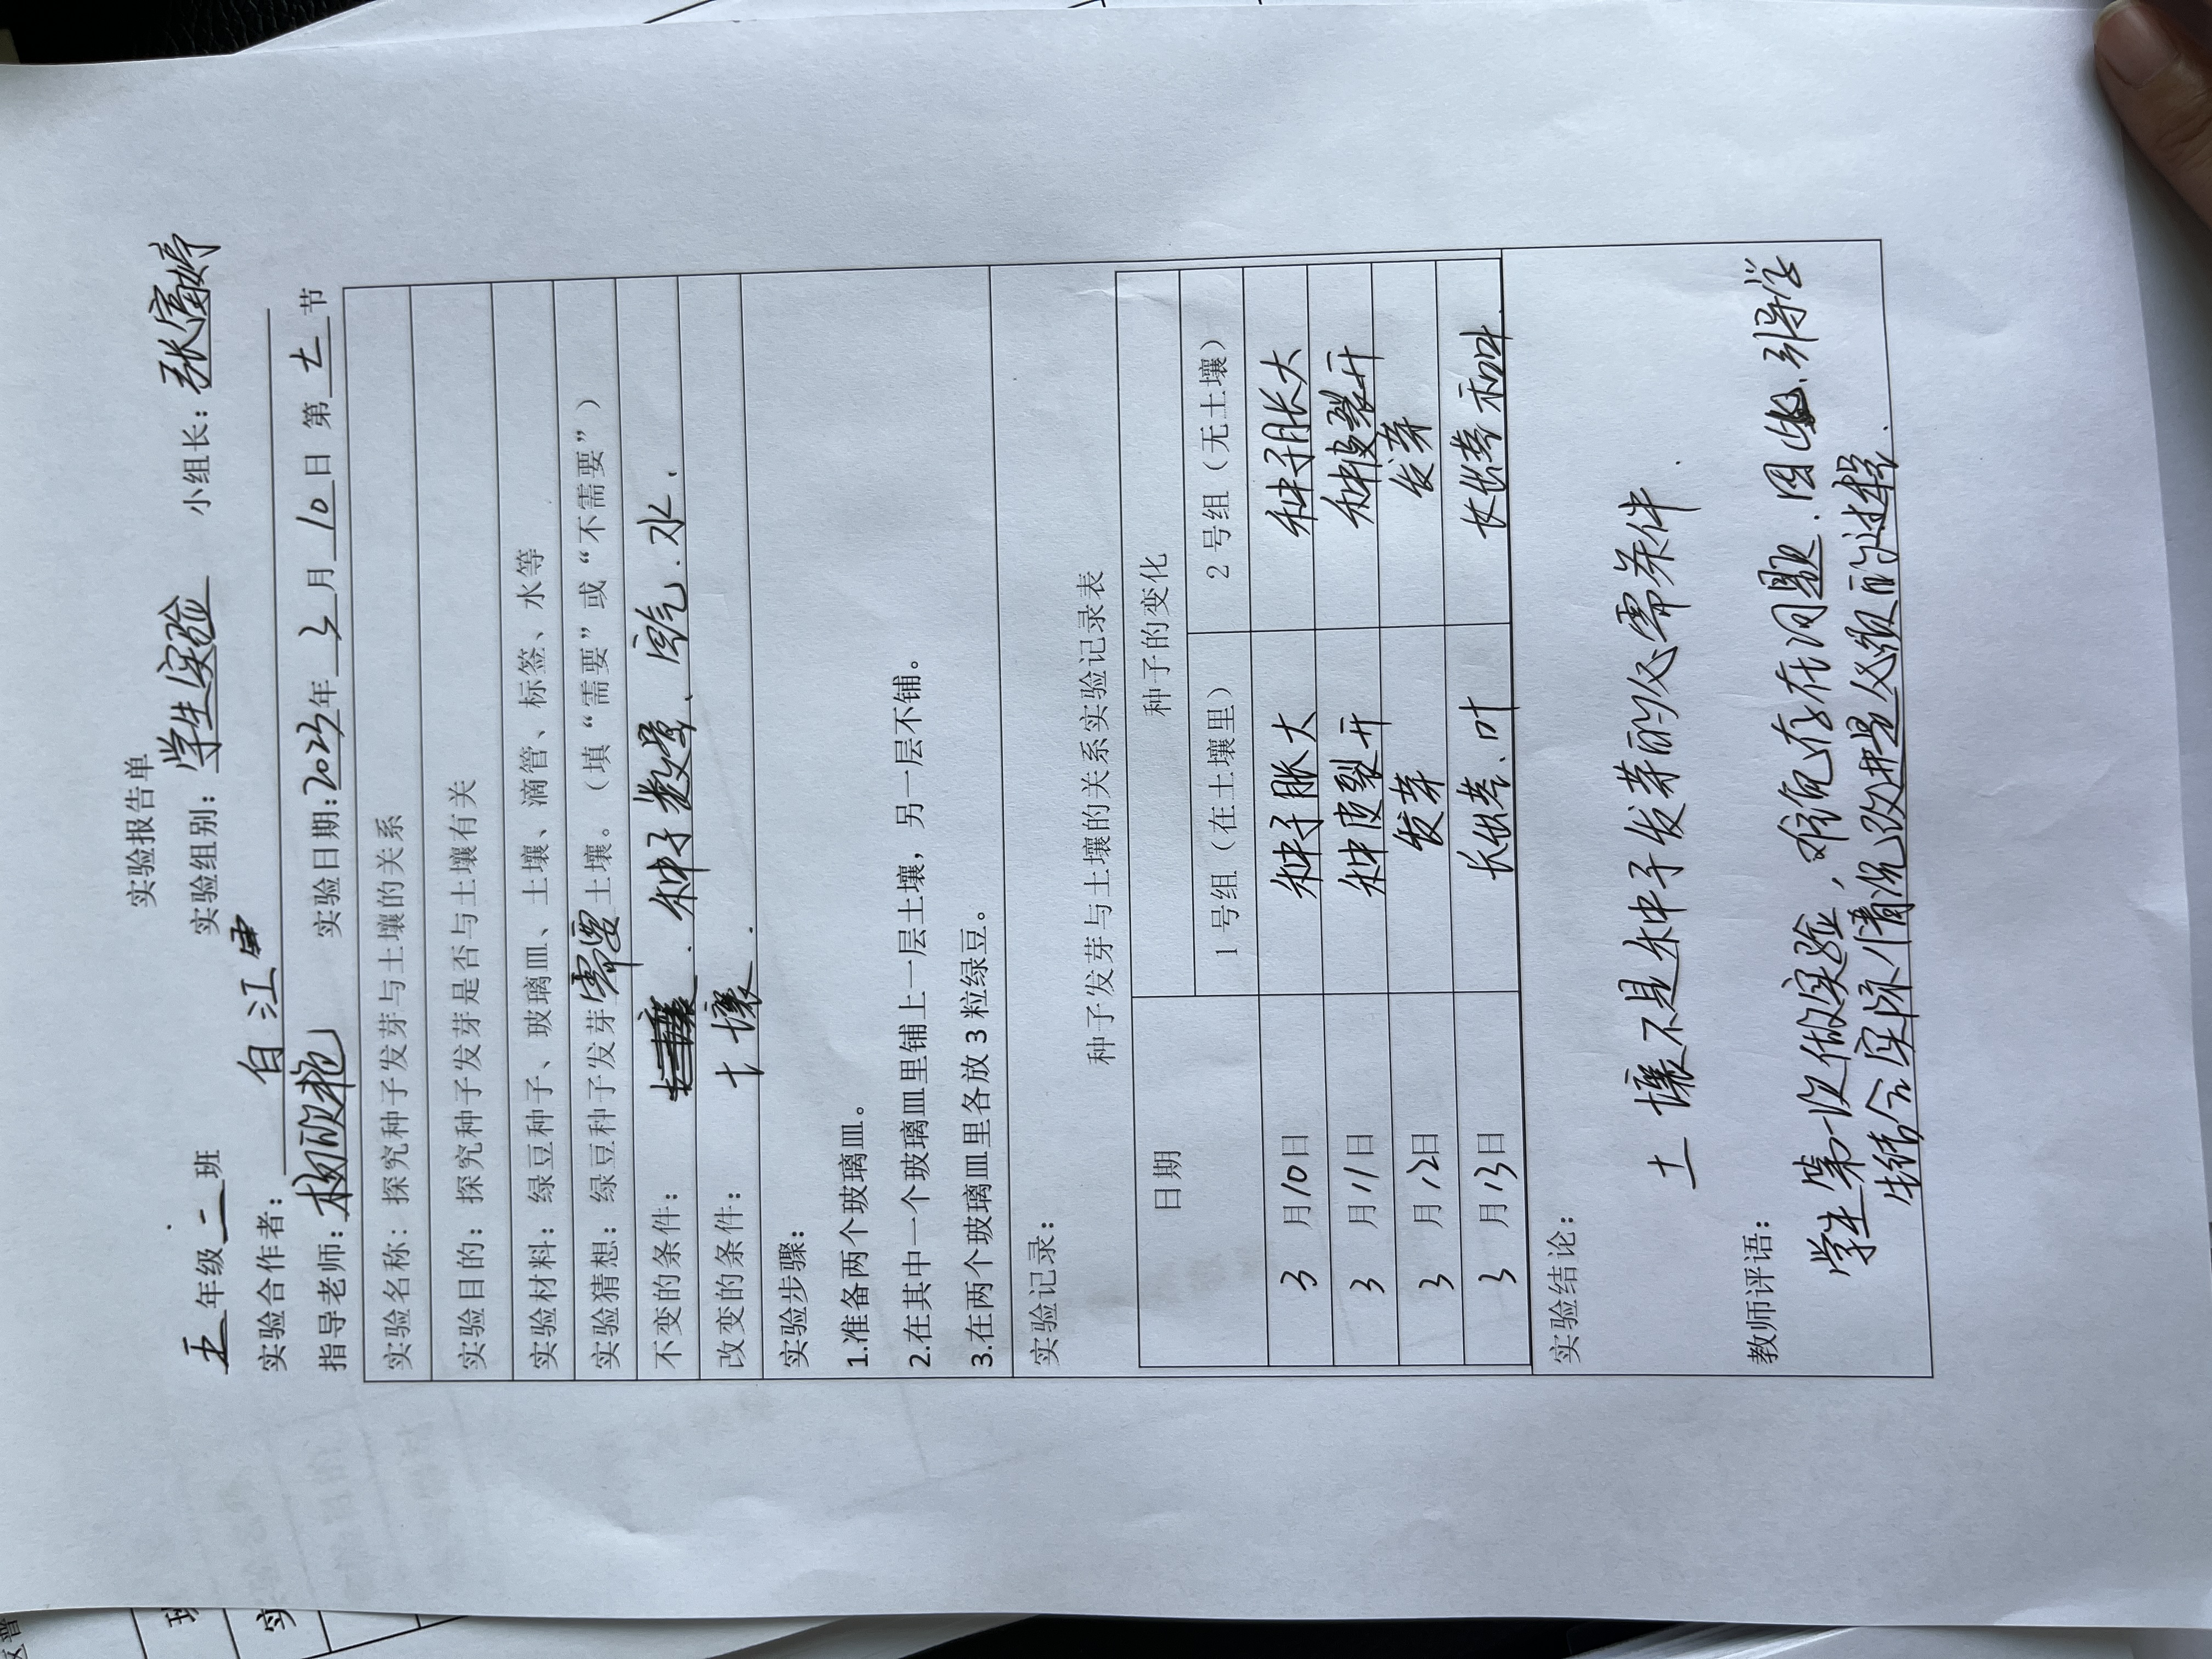 实验报告单
五年级二班 实验组别：学生实验 小组长：张富婷
实验合作者：白江
指导老师：杨欣艳 实验日期：2023年3月10日 第七节
实验名称：探究种子发芽与土壤的关系
实验目的：探究种子发芽是否与土壤有关
实验材料：绿豆种子、玻璃皿、土壤、滴管、标签、水等
实验猜想：绿豆种子发芽需要土壤。（填“需要”或“不需要”）
不变的条件：种子数量、空气.水.
改变的条件：土壤.
实验步骤：
1.准备两个玻璃皿。
2.在其中一个玻璃皿里铺上一层土壤，另一层不铺。
3.在两个玻璃皿里各放 3 粒绿豆。
实验记录：
种子发芽与土壤的关系实验记录表
日期 种子的变化
1 号组（在土壤里） 2 号组（无土壤）
3月10日 种子胀大 种子胀大
3月11日 种皮裂开 种皮裂开
3月12日 发芽 发芽
3月13日 长出茎、叶 长出茎和叶
实验结论：
土壤不是种子发芽的必需条件.
教师评语：
学生第一次做实验，难免存在问题.因此.引导学
生结合实际情况改进是必须的过程.